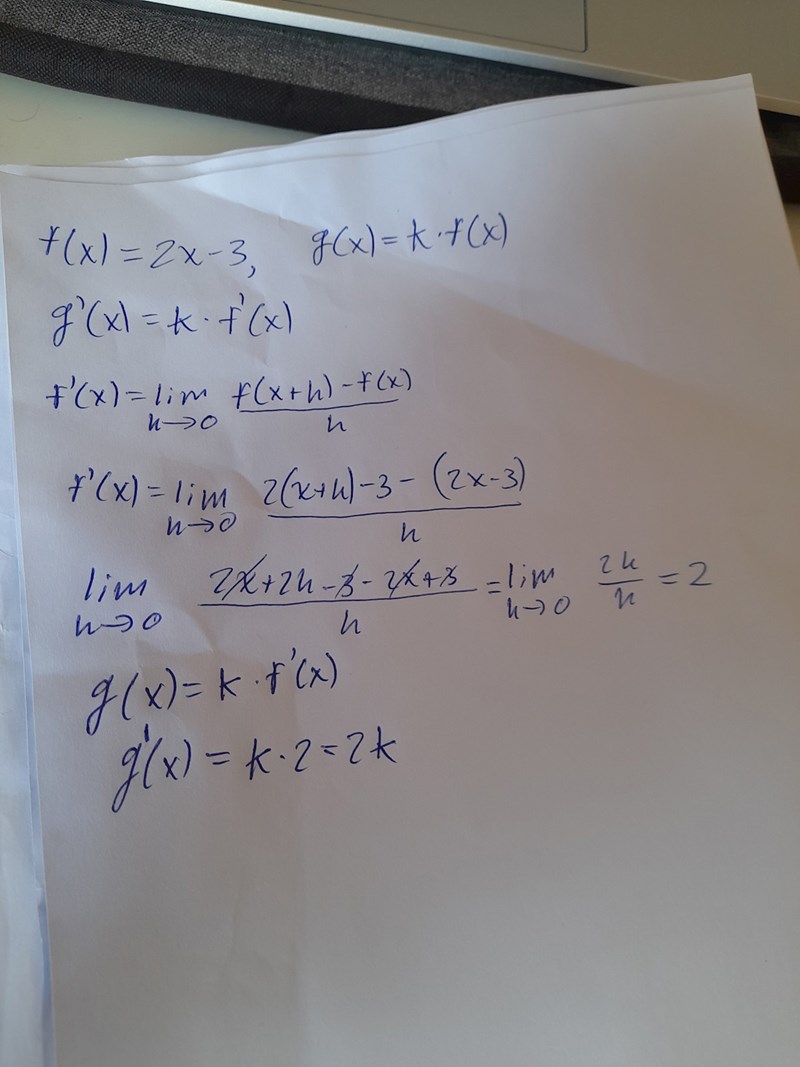 f(x) = 2x-3,   g(x) = k·f(x)
g'(x) = k · f'(x)
f'(x) = lim h→0 f(x+h)-f(x) / h
f'(x) = lim h→0 2(x+h)-3-(2x-3) / h
lim h→0 2x+2h-3-2x+3 / h = lim h→0 2h / h = 2
g(x) = k · f'(x)
g'(x) = k·2 = 2k